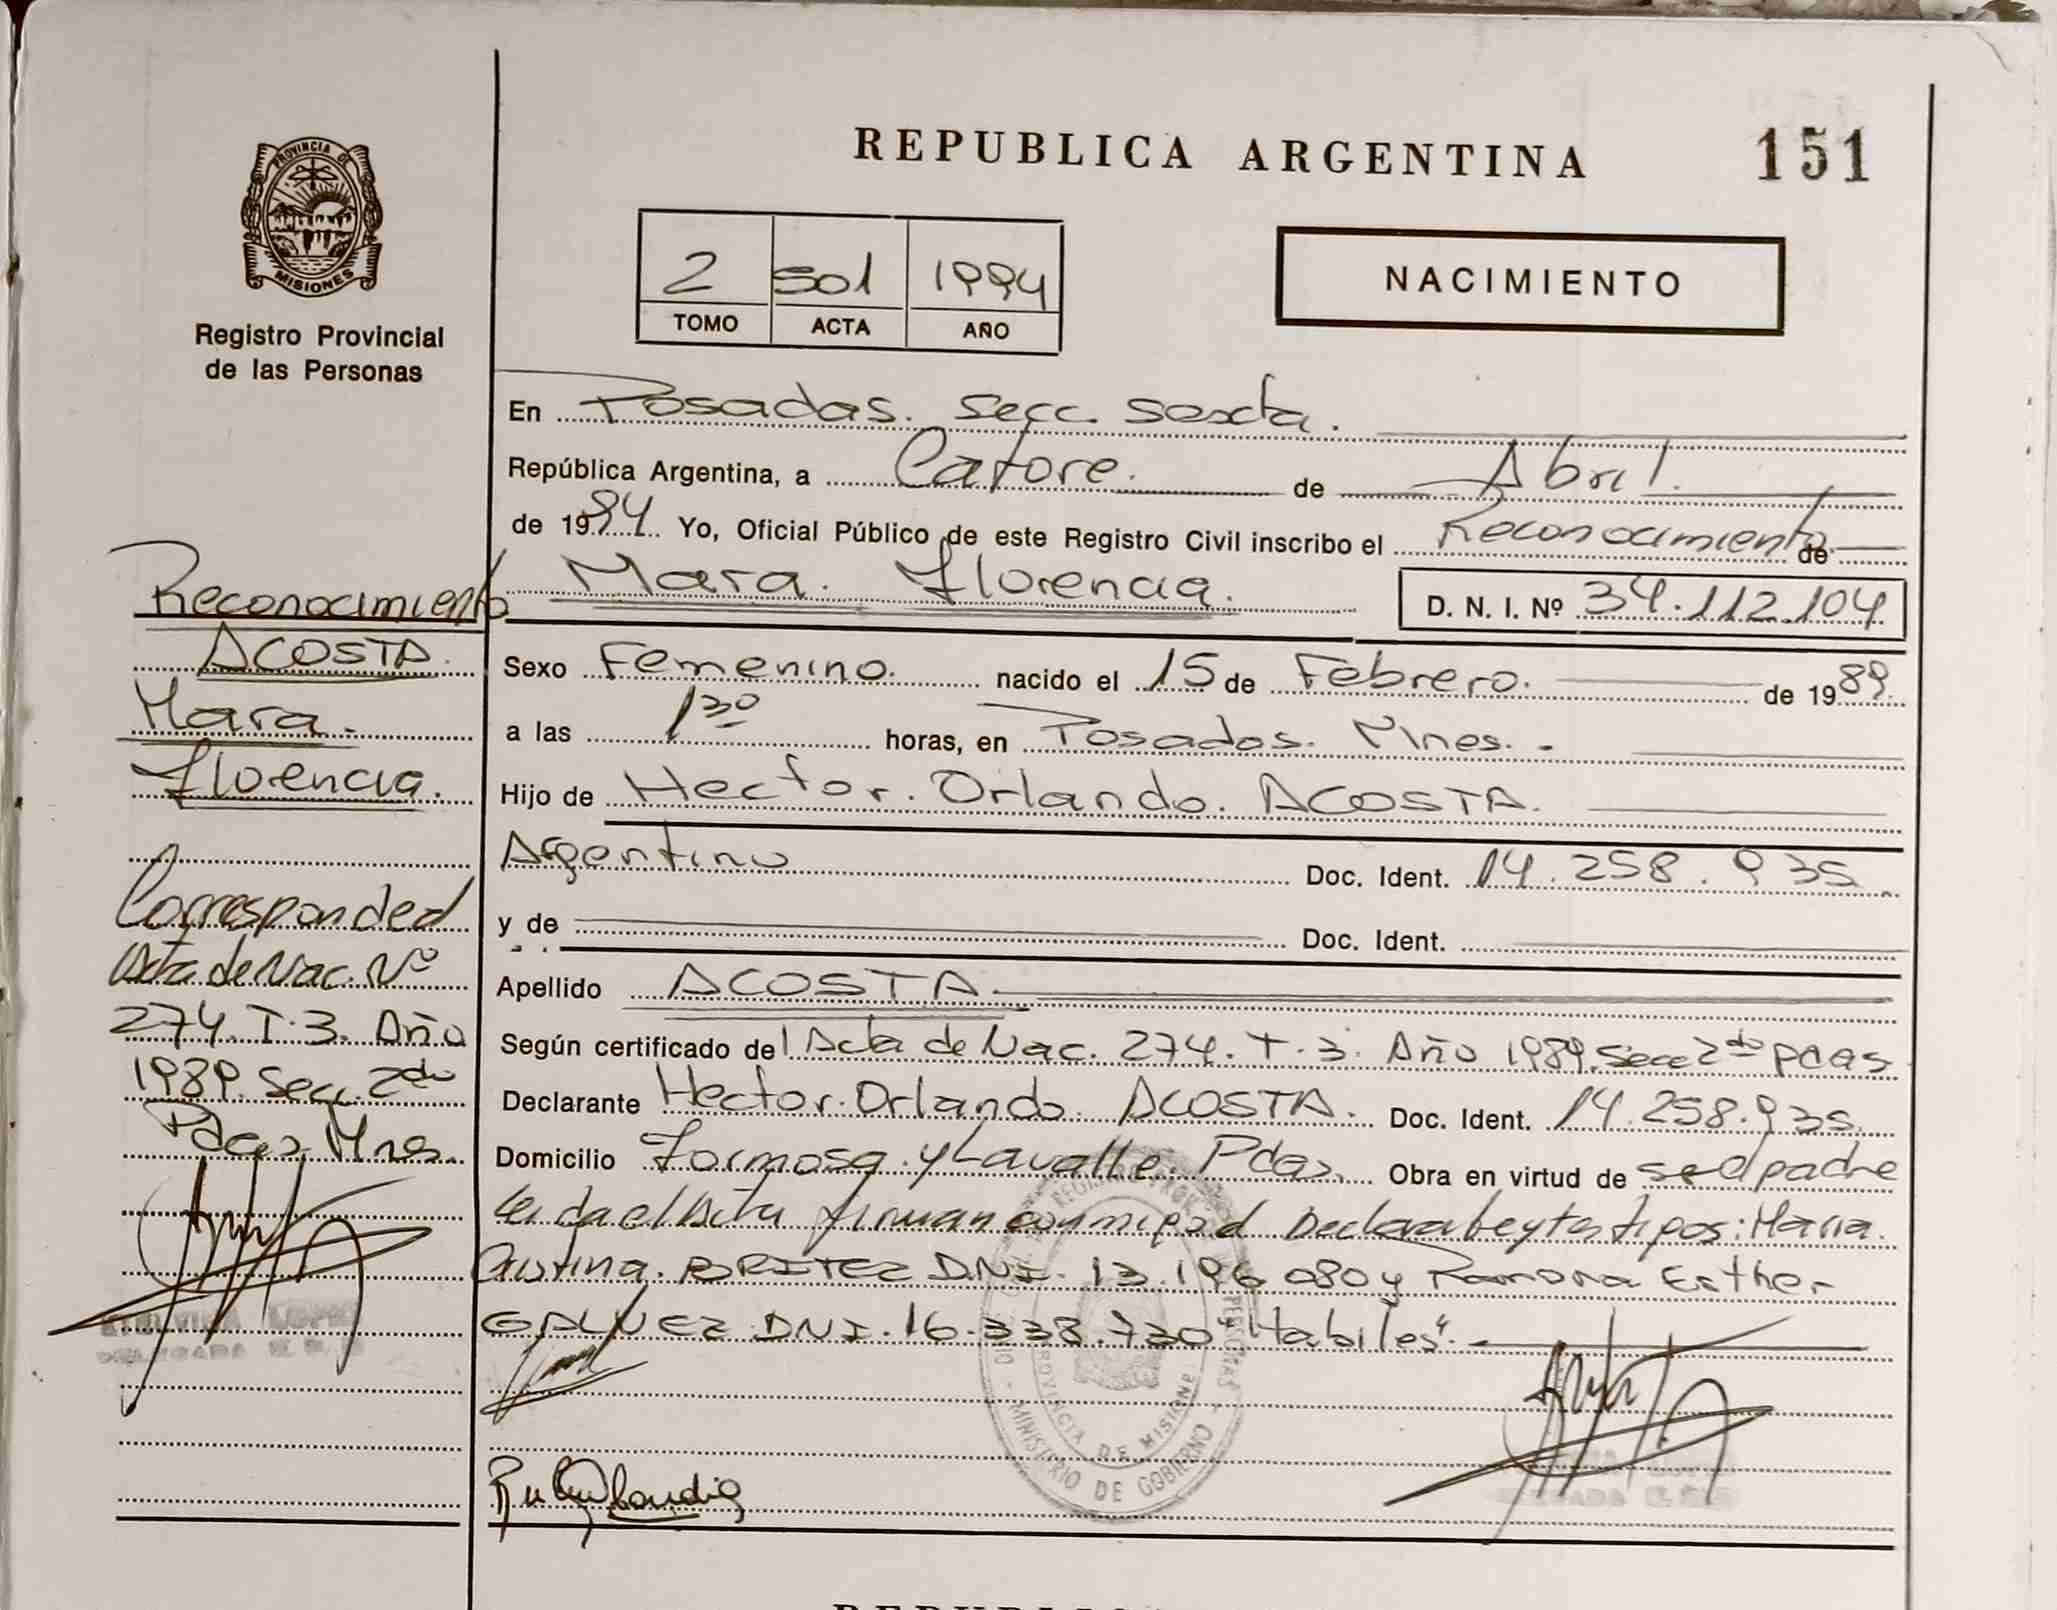 REPUBLICA ARGENTINA
151
PROVINCIA DE
MISIONES
Registro Provincial
de las Personas
2 501 1994
TOMO ACTA AÑO
NACIMIENTO
En Posadas. Secc. Sexta.
República Argentina, a Catorce. de Abril.
de 1994. Yo, Oficial Público de este Registro Civil inscribo el Reconocimiento de
Mara. Florencia. D. N. I. Nº 34.112.104
Sexo Femenino. nacido el 15 de Febrero. de 1989.
a las 1 30 horas, en Posadas. Mnes.-
Hijo de Hector. Orlando. ACOSTA.
Argentino Doc. Ident. 14.258.935
y de Doc. Ident.
Apellido ACOSTA.
Según certificado del Acta de Nac. 274. T.3. Año 1989. Secc 2da Pdas
Declarante Hector. Orlando. ACOSTA. Doc. Ident. 14.258.935
Domicilio Formosa y Lavalle. Pdas. Obra en virtud de ser el padre
Leida el Acta firman conmigo el Declarante y testigos: Maria.
Cristina. BRITEZ DNI. 13.196.080 y Ramona Esther
GALVEZ DNI. 16.338.730 "Habiles".
Reconocimiento
ACOSTA.
Mara.
Florencia.
Corresponde al
Acta de Nac. Nº
274. T.3. Año
1989. Secc. 2da
Pdas Mnes.
PROVINCIA DE MISIONES
MINISTERIO DE GOBIERNO